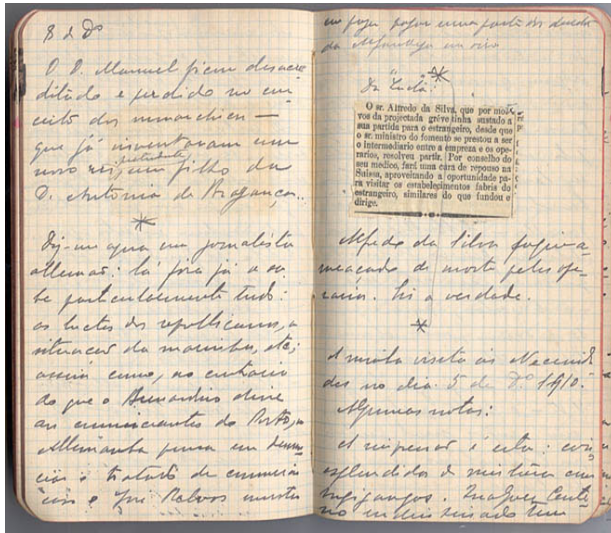 8 d Dº
O D. Manuel ficou desacre
ditado e perdido no con-
ceito dos monarchicos —
que já inventaram um
novo rei, pretendente, um filho da
D. Antónia de Bragança..
*
Diz-me agora um jornalista
allemão: lá fóra já se sa-
be particularmente tudo:
as luctas dos republicanos, a
situação da marinha, etc;
assim como, ao contrario
do que o Bernardino disse
aos commerciantes do Porto, a
Allemanha pensa em denun-
ciar o tratado de commercio
e José Relvas
pagar uma parte dos
da Alfandega em oiro
*
Da Lucta:
O sr. Alfredo da Silva, que por moti-
vos da projectada gréve tinha sustado a
sua partida para o estrangeiro, desde que
o sr. ministro do fomento se prestou a ser
o intermediario entre a empreza e os ope-
rarios, resolveu partir. Por conselho do
seu medico, fará uma cura de repouso na
Suissa, aproveitando a oportunidade pa-
ra visitar os estabelecimentos fabris do
estrangeiro, similares do que fundou e
dirige.
Alfredo da Silva fugiu a-
meaçado de morte pelos ope-
rarios. Eis a verdade.
*
A minha visita ás Necessida
des no dia 5 de Dº 1910.
Algumas notas:
A impressão é esta: coisas
esplendidas de mistura com